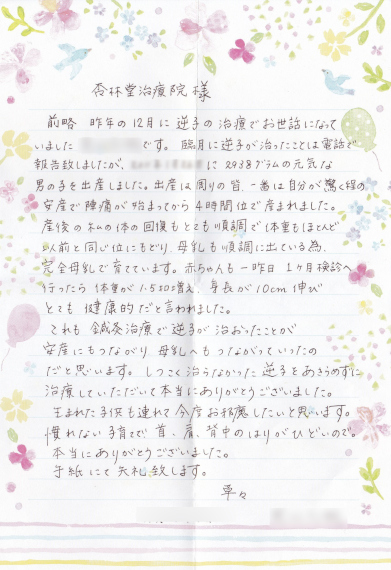 杏林堂治療院様
前略 昨年の12月に逆子の治療でお世話になって
いました です。臨月に逆子が治ったことは電話で
報告致しましたが、 に2938グラムの元気な
男の子を出産しました。出産は周りの皆、一番は自分が驚く程の
安産で陣痛が始まってから4時間位で産まれました。
産後の私の体の回復もとても順調で体重もほとんど
以前と同じ位にもどり、母乳も順調に出ている為、
完全母乳で育てています。赤ちゃんも一昨日1ヶ月検診へ
行ったら体重が1.5キロ増え、身長が10cm伸び
とても健康的だと言われました。
これも鍼灸治療で逆子が治おったことが
安産にもつながり母乳へもつながっていったの
だと思います。しつこく治らなかった逆子をあきらめずに
治療していただいて本当にありがとうございました。
生まれた子供も連れて今度お邪魔したいと思います。
慣れない子育てで首、肩、背中のはりがひどいので。
本当にありがとうございました。
手紙にて失礼致します。
草々